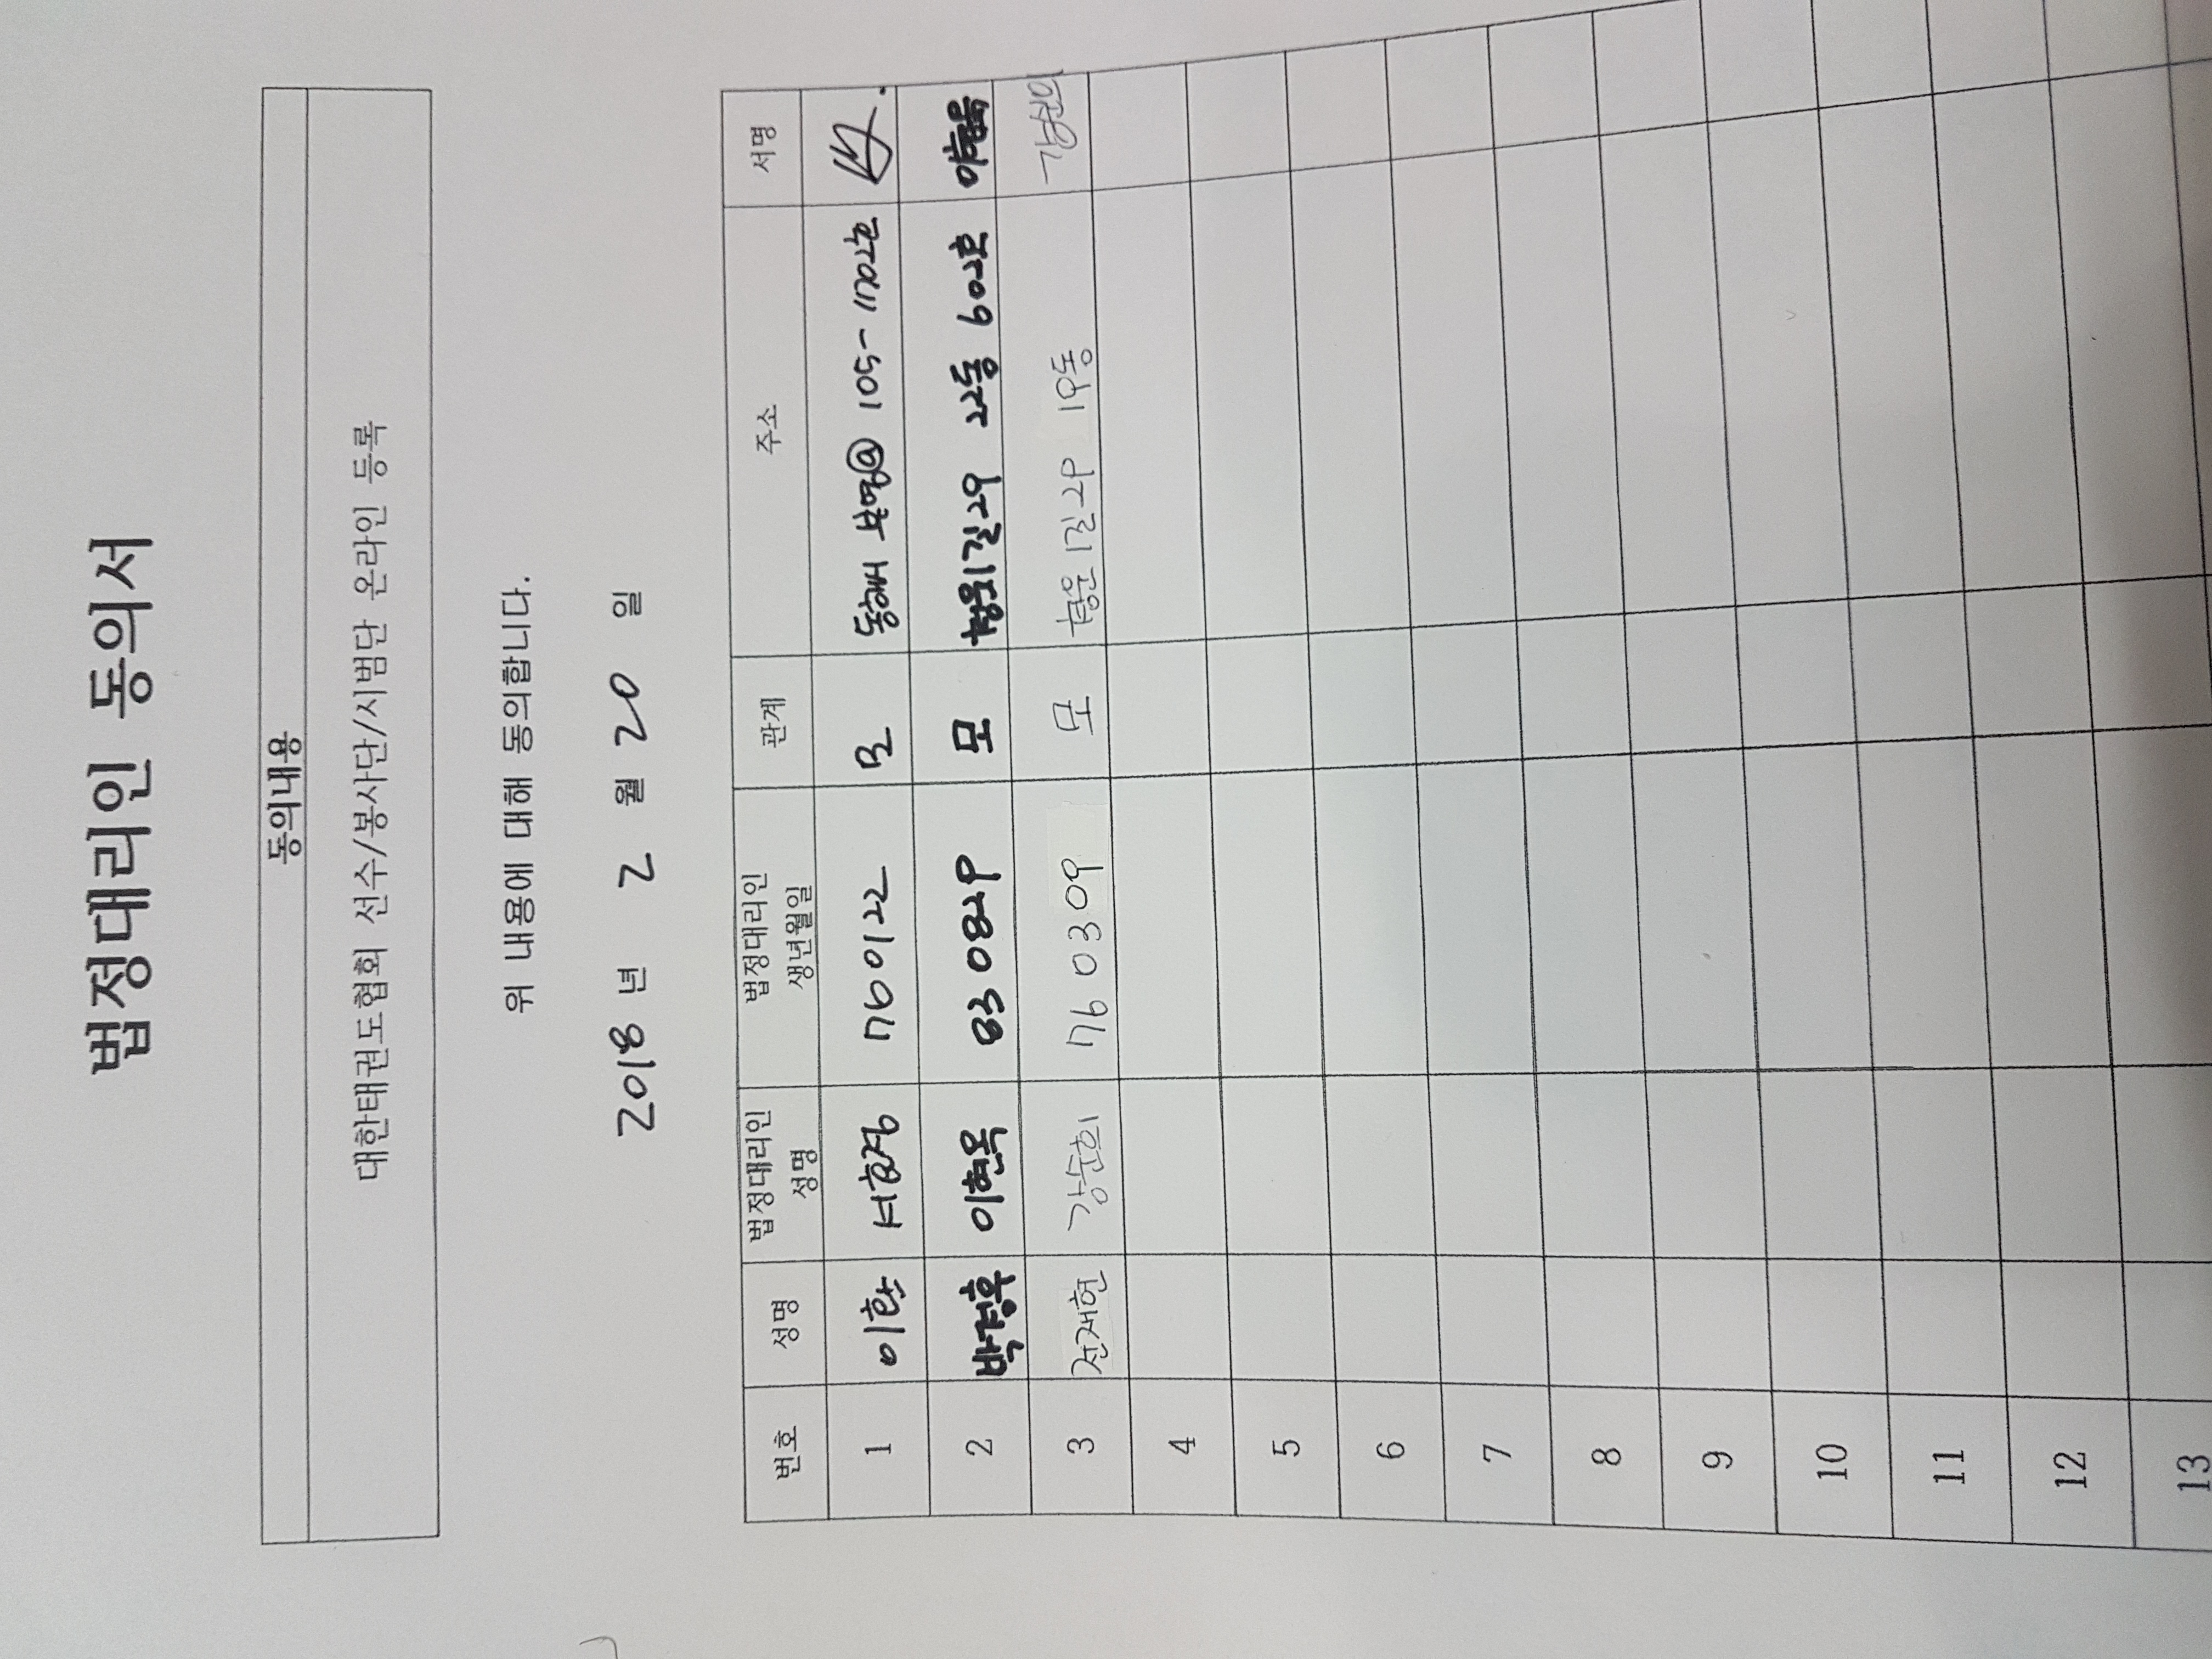 법정대리인 동의서
동의내용
대한태권도협회 선수/봉사단/시범단 온라인 등록
위 내용에 대해 동의합니다.
2018 년 2 월 20 일
번호 성명 법정대리인 성명 법정대리인 생년월일 관계 주소 서명
1 이한 서현정 760122 모 105-1702호
2 박경후 이현옥 850829 모 22동 609호
3 전재현 강순희 760309 모 19동
4
5
6
7
8
9
10
11
12
13